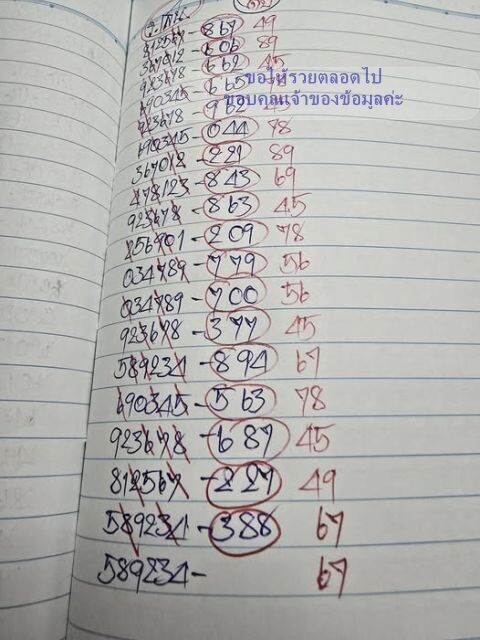 812567-867 49
367012-606 89
923678-662 45
ขอให้รวยตลอดไป
690345-665
ขอบคุณเจ้าของข้อมูลค่ะ
923678-962 45
690345-044 78
367012-221 89
478123-843 69
923678-863 45
256901-209 78
034789-779 56
034789-700 56
923678-377 45
589234-894 67
690345-563 78
923678-687 45
812567-227 49
589234-388 67
589234- 67